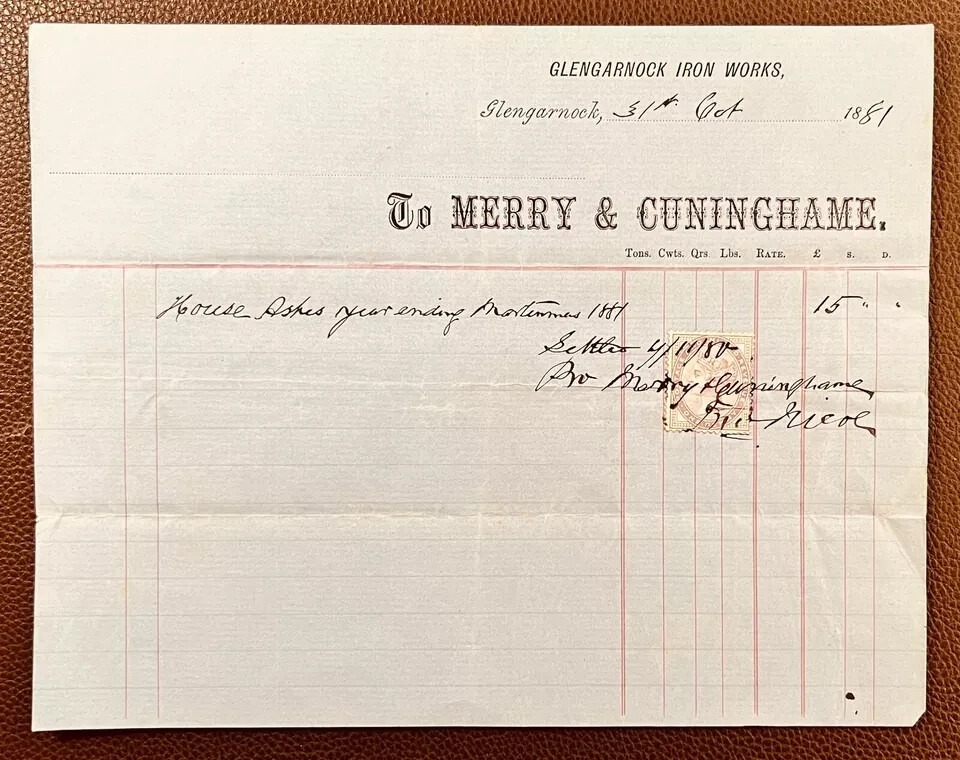 GLENGARNOCK IRON WORKS,
Glengarnock, 31st Oct 1881
To MERRY & CUNINGHAME.
Tons. Cwts. Qrs. Lbs. RATE. £ S. D.
House Ashes year ending Martinmas 1881 15 " "
Settled 4/11/80
Pro Merry & Cuninghame
Jno Nicol